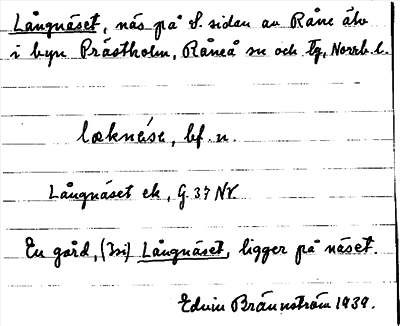 Långnäset, näs på S. sidan av Råne älv
i byn Prästholm, Råneå sn och tg, Norrb. l.
lɑknǽsɛ, bf. n.
Långnäset ek, G. 37 NV.
En gård, (Isi) Långnäset, ligger på näset.
Edvin Brännström 1939.